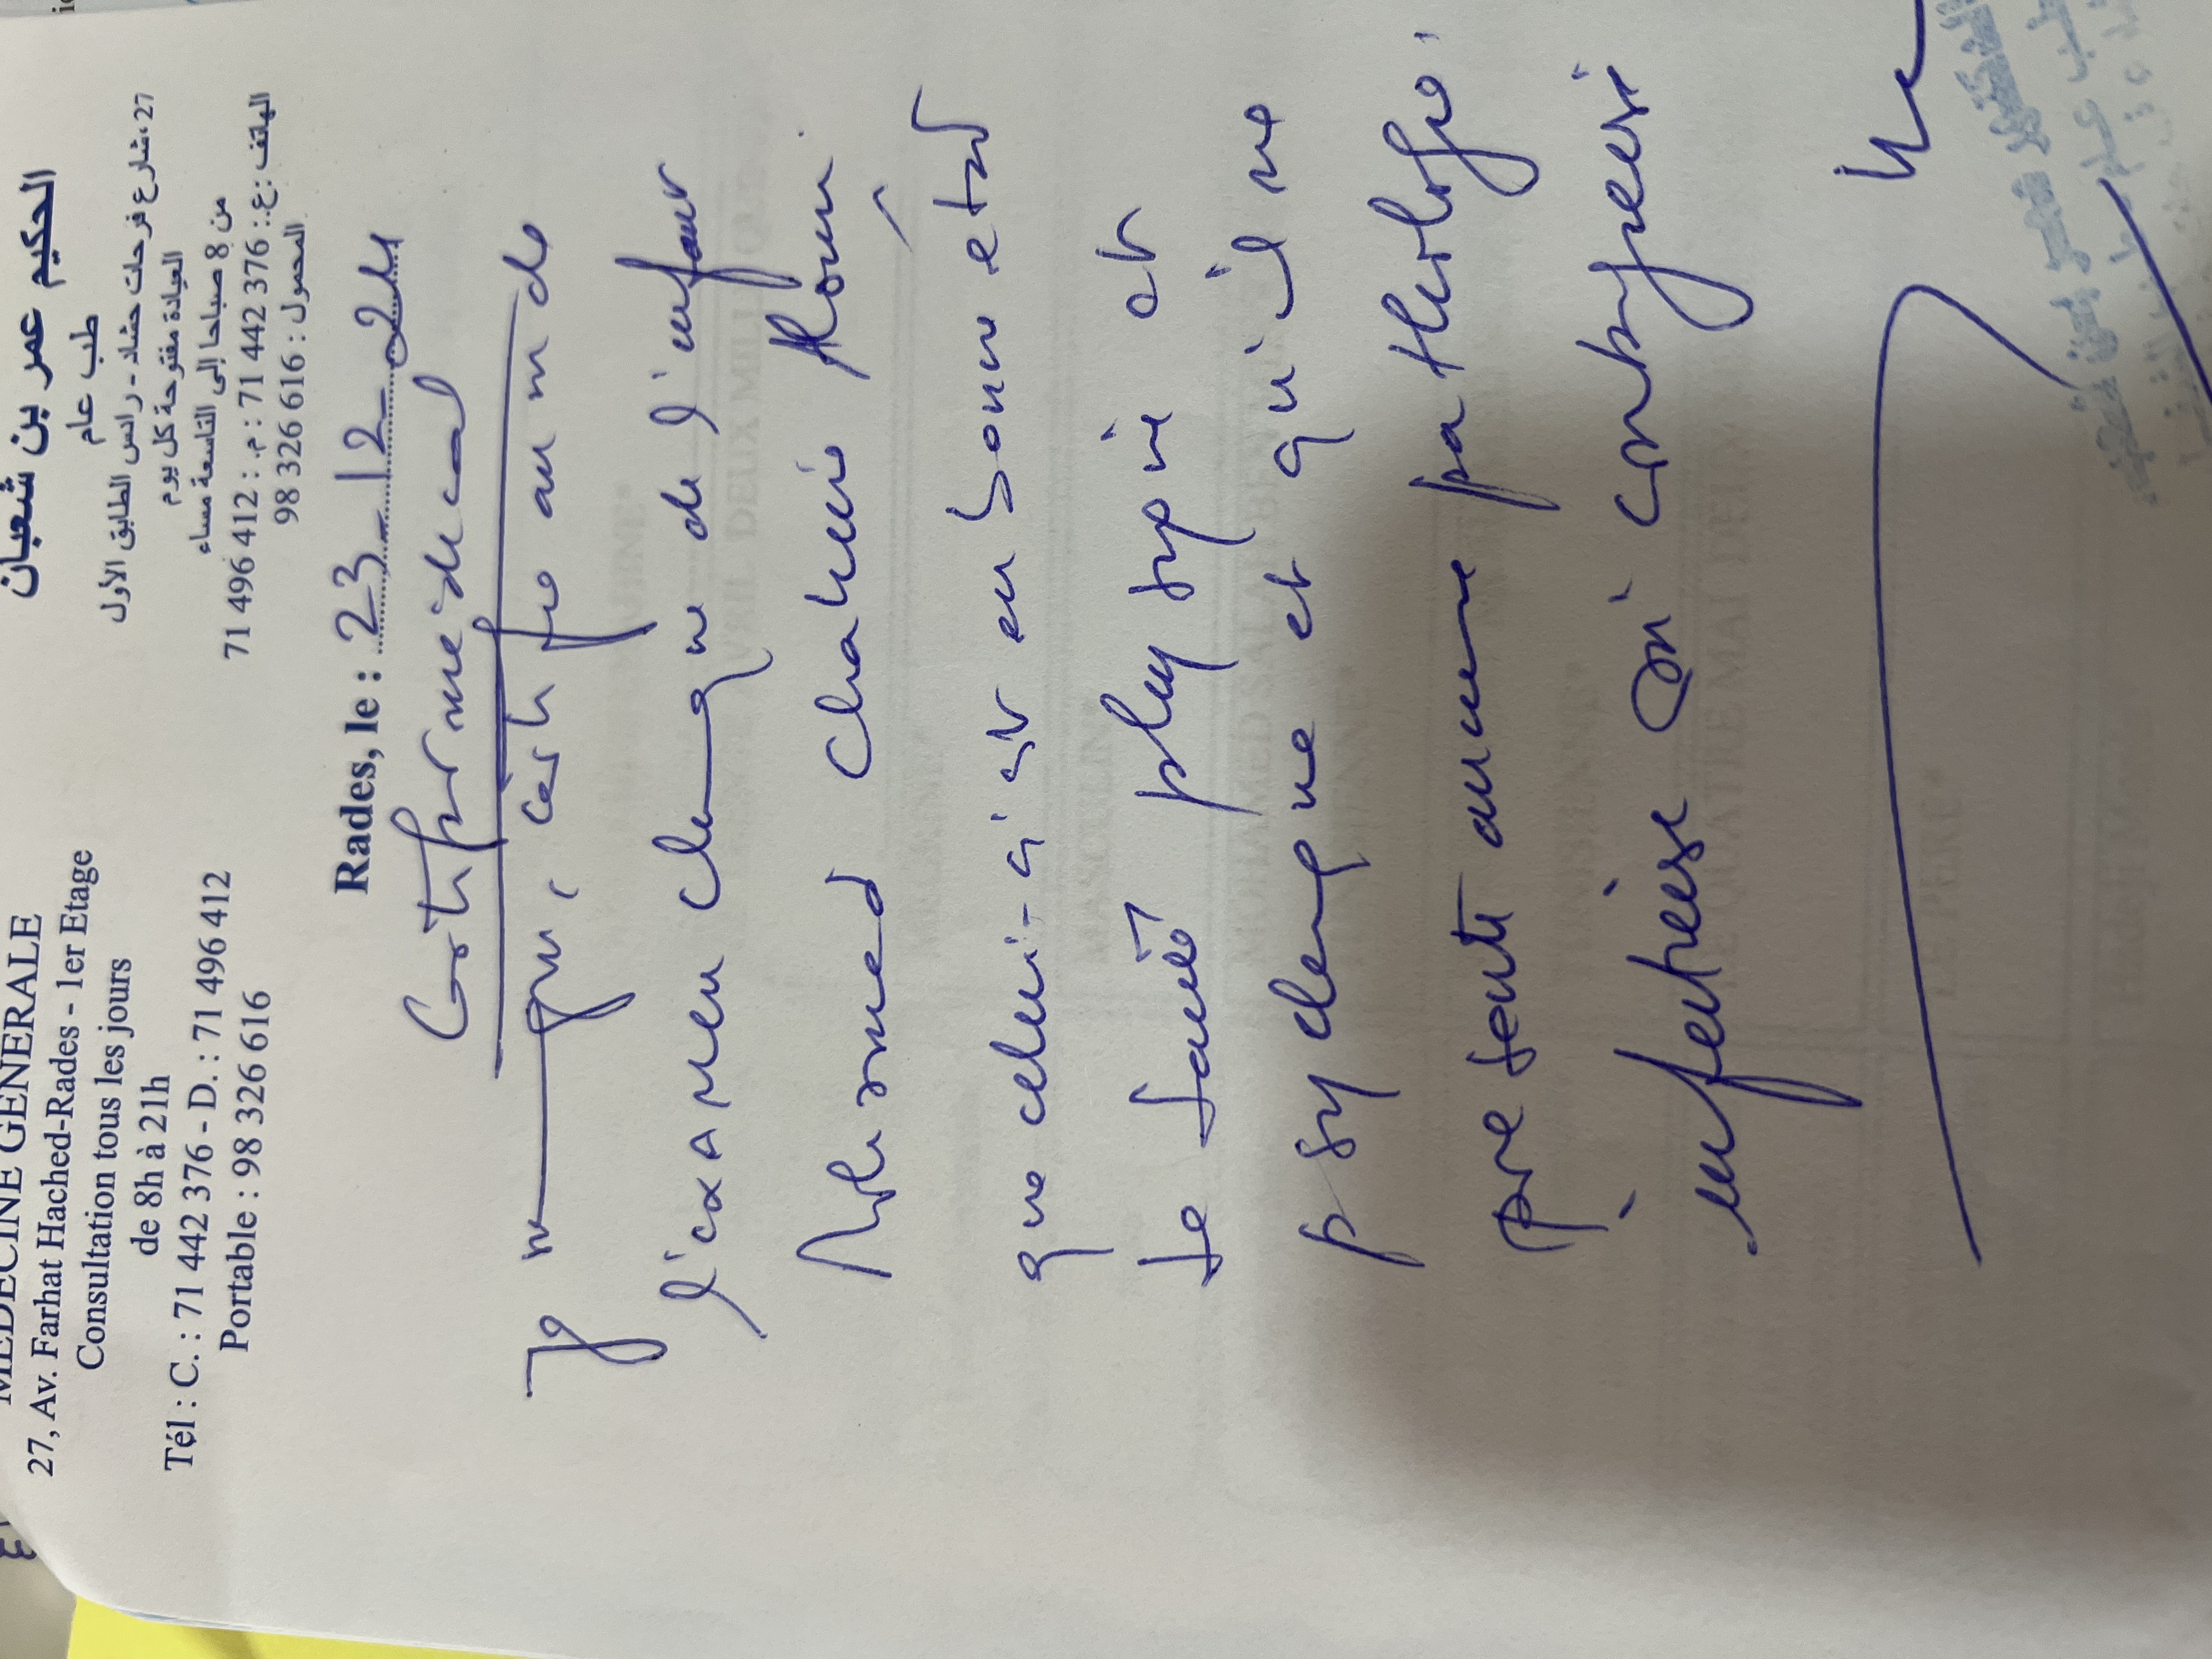 MEDECINE GENERALE
27, Av. Farhat Hached-Rades - 1er Etage
Consultation tous les jours
de 8h à 21h
Tél : C. : 71 442 376 - D. : 71 496 412
Portable : 98 326 616
الحكيم عمر بن شعبان
طب عام
27، شارع فرحات حشاد - رادس الطابق الأول
العيادة مفتوحة كل يوم
من 8 صباحا إلى التاسعة مساء
الهاتف : ع. : 376 442 71 م. : 412 496 71
المحمول : 616 326 98
Rades, le : 23-12-24
Certif médical
Je certifie au m de
l'examen clinique de l'enfant
Mohamed
que celui-ci est en bonne état
de santé physique et
psychique et qu'il ne
présente aucune pathologie
infectieuse ou contagieuse